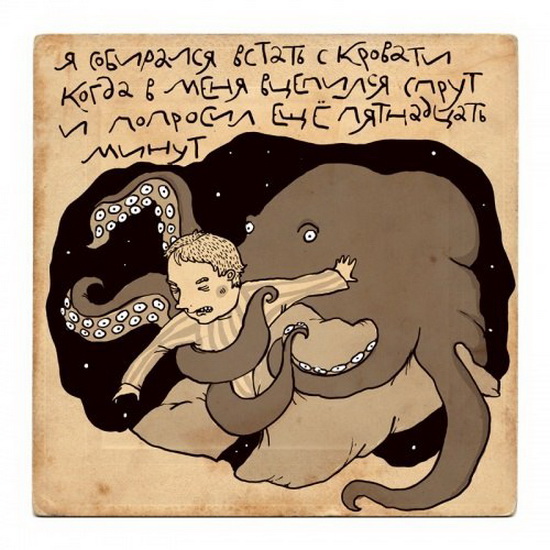 я собирался встать с кровати
когда в меня вцепился спрут
и попросил ещё пятнадцать
минут